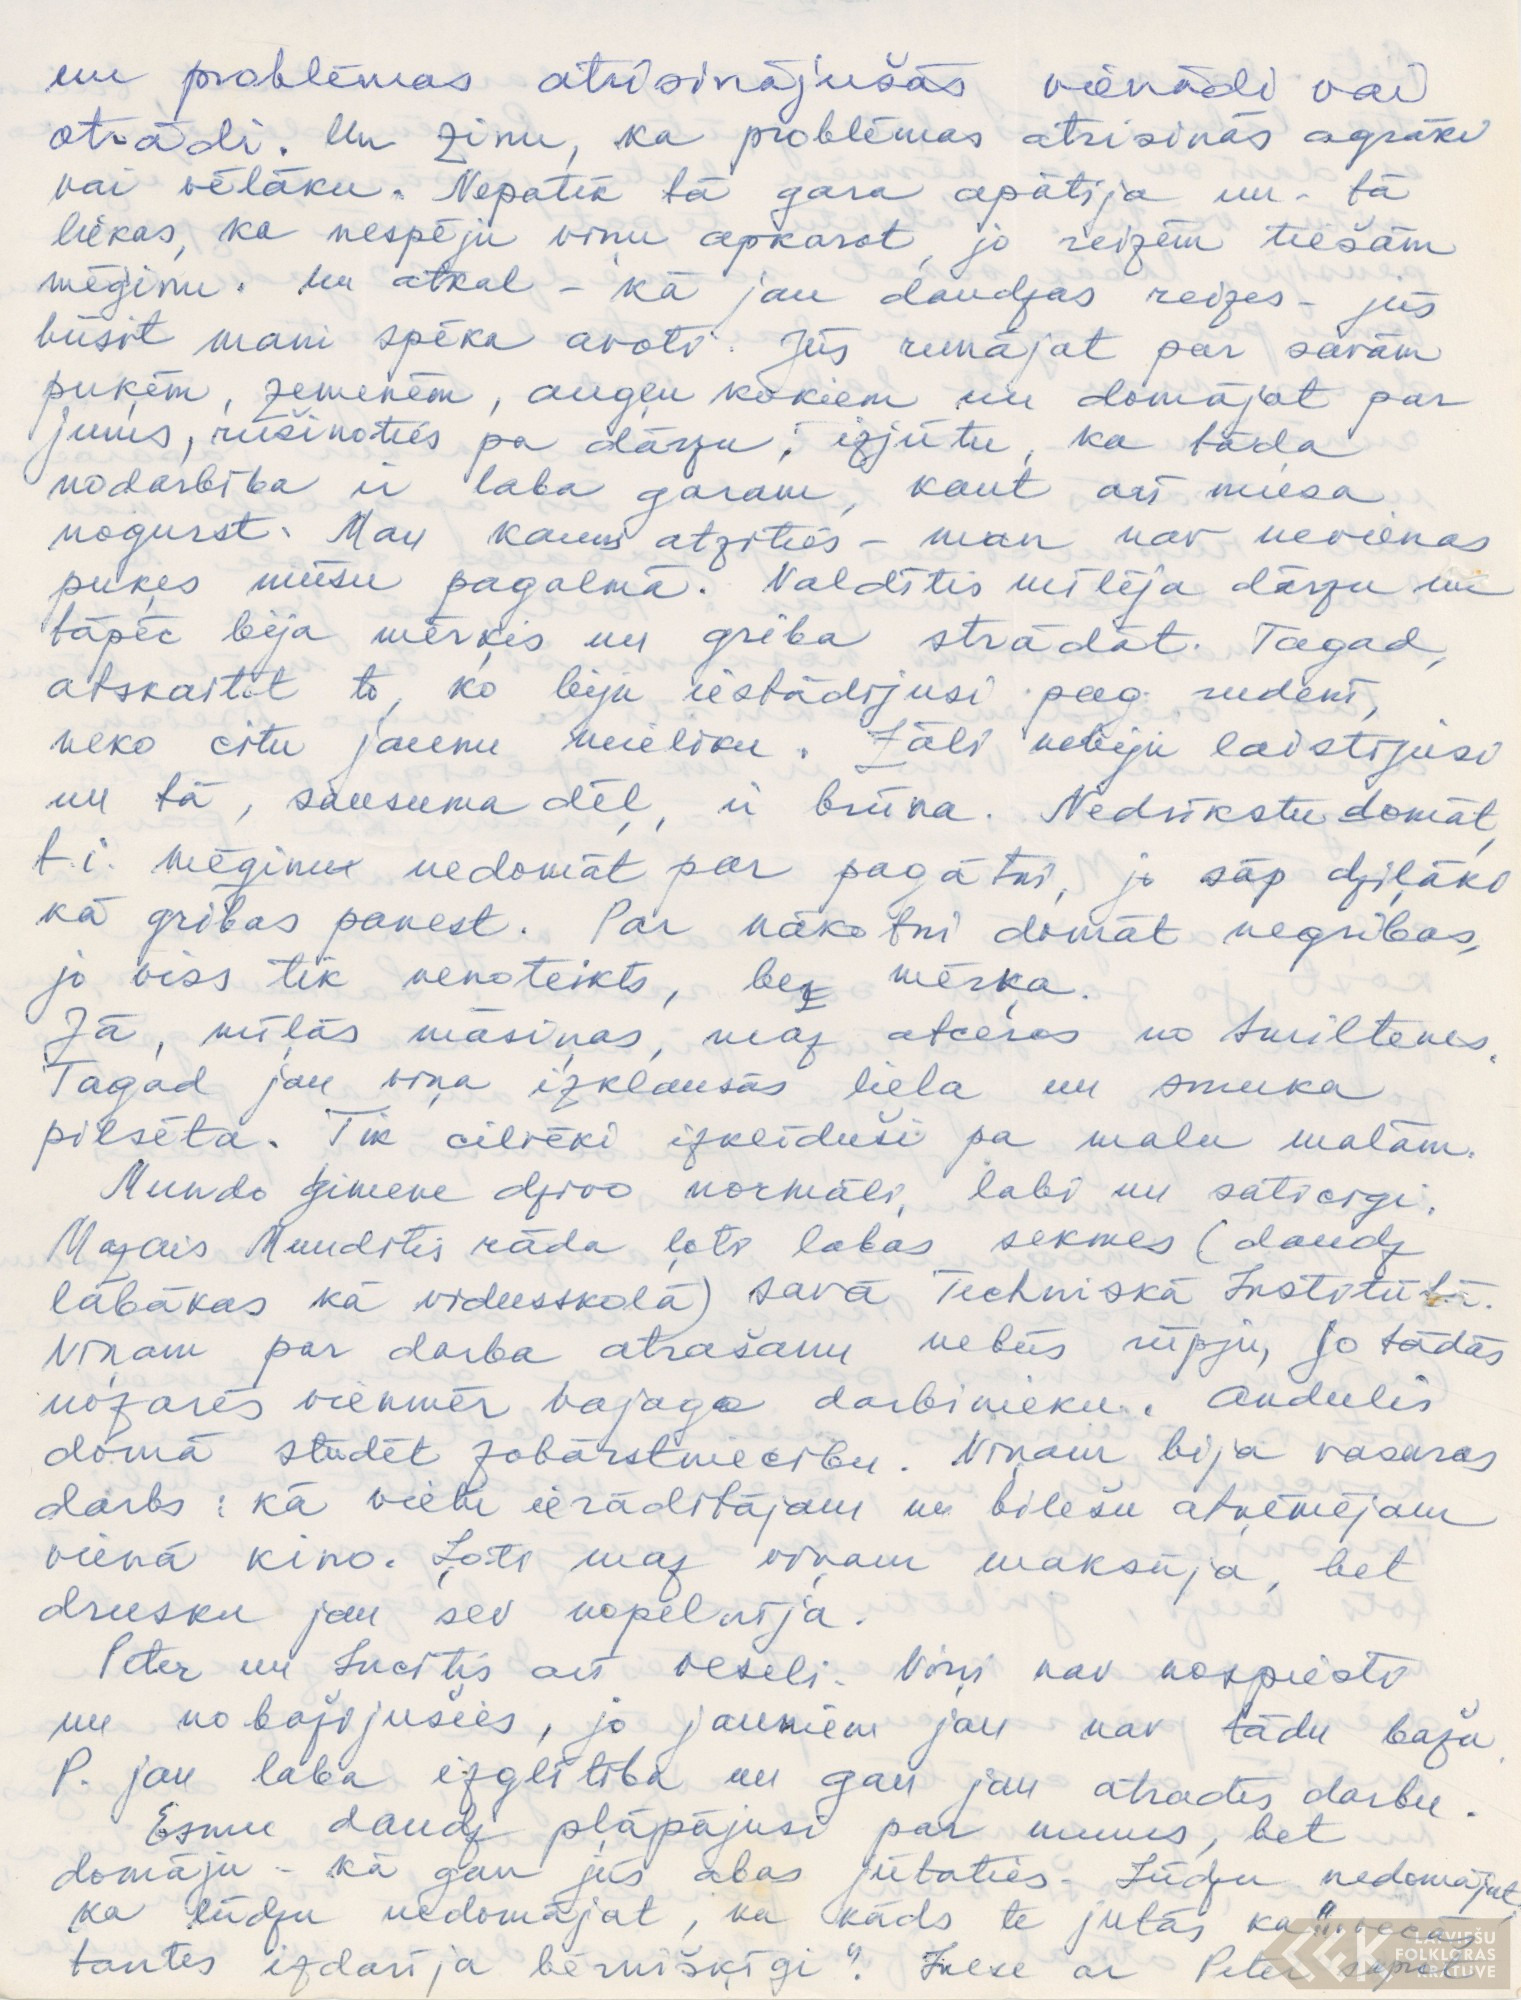 un problēmas atrisinājušās vienādi vai
otrādi. Un zinu, ka problēmas atrisinās agrāki
vai vēlāku. Nepatīk tā gara apātija un - tā
liekas, ka nespēju viņu apkarot, jo reizēm tiešām
mēģinu. Un atkal - kā jau daudzas reizes - jūs
būsit mani spēka avoti. Jūs runājat par savām
puķēm, zemenēm, augļu kokiem un domājot par
jums, rušinoties pa dārzu, izjūtu, ka tāda
nodarbība ir laba garam, kaut arī miesa
nogurst. Man kauns atzīties - man nav nevienas
puķes mūsu pagalmā. Valdītis mīlēja dārzu un
tāpēc bija mērķis un griba strādāt. Tagad,
atskaitot to, ko biju iestādījusi pag. rudenī,
neko citu jaunu neieliku. Zāli nebiju laistījusi
un tā, sausuma dēļ, ir brūna. Nedrīkstu domāt,
t.i. mēģinu nedomāt par pagātni, jo sāp dziļāki
kā gribas panest. Par nākotni domāt negribas,
jo viss tik nenoteikts, bez mērķa.
Jā, mīļās māsiņas, maz atceros no Smiltenes.
Tagad jau viņa izklausās liela un smuka
pilsēta. Tik cilvēki izklīduši pa malu malām.
Mundo ģimene dzīvo normāli, labi un saticīgi.
Mazais Mundītis rāda ļoti labas sekmes (daudz
labākas kā vidusskolā) savā Techniskā Institūtā.
Viņam par darba atrašanu nebūs rūpju, jo tādās
nozarēs vienmēr vajaga darbinieku. Andulis
domā studēt zobārstniecību. Viņam bija vasaras
darbs: kā vietu ierādītājam un biļešu atņēmējam
vienā kino. Ļoti maz viņam maksāja, bet
drusku jau sev nopelnīja.
Peter un Incītis arī veseli. Viņi nav nospiesti
un nobažījušies, jo jauniem jau nav tādu bažu.
P. jau laba izglītība un gan jau atradīs darbu.
Esmu daudz pļāpājusi par mums, bet
domāju - kā gan jūs abas jūtaties. Lūdzu nedomājat,
ka lūdzu nedomājat, ka kāds te jutās ka "vecās
tantes izdarīja bērnišķīgi". Inese ar Peter saprot
LATVIEŠU
FOLKLORAS
KRĀTUVE